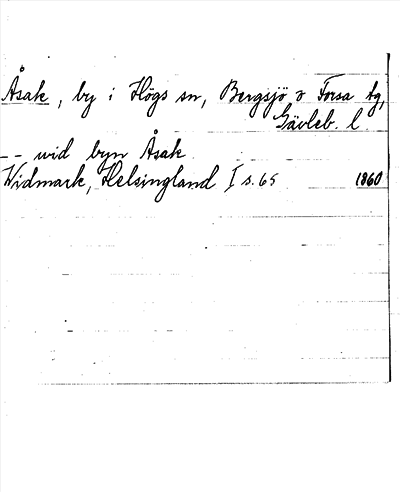 Åsak, by i Högs sn, Bergsjö o Forsa tg,
Gävleb. l.
– – wid byn Åsak
Widmark, Helsingland I s. 65 1860